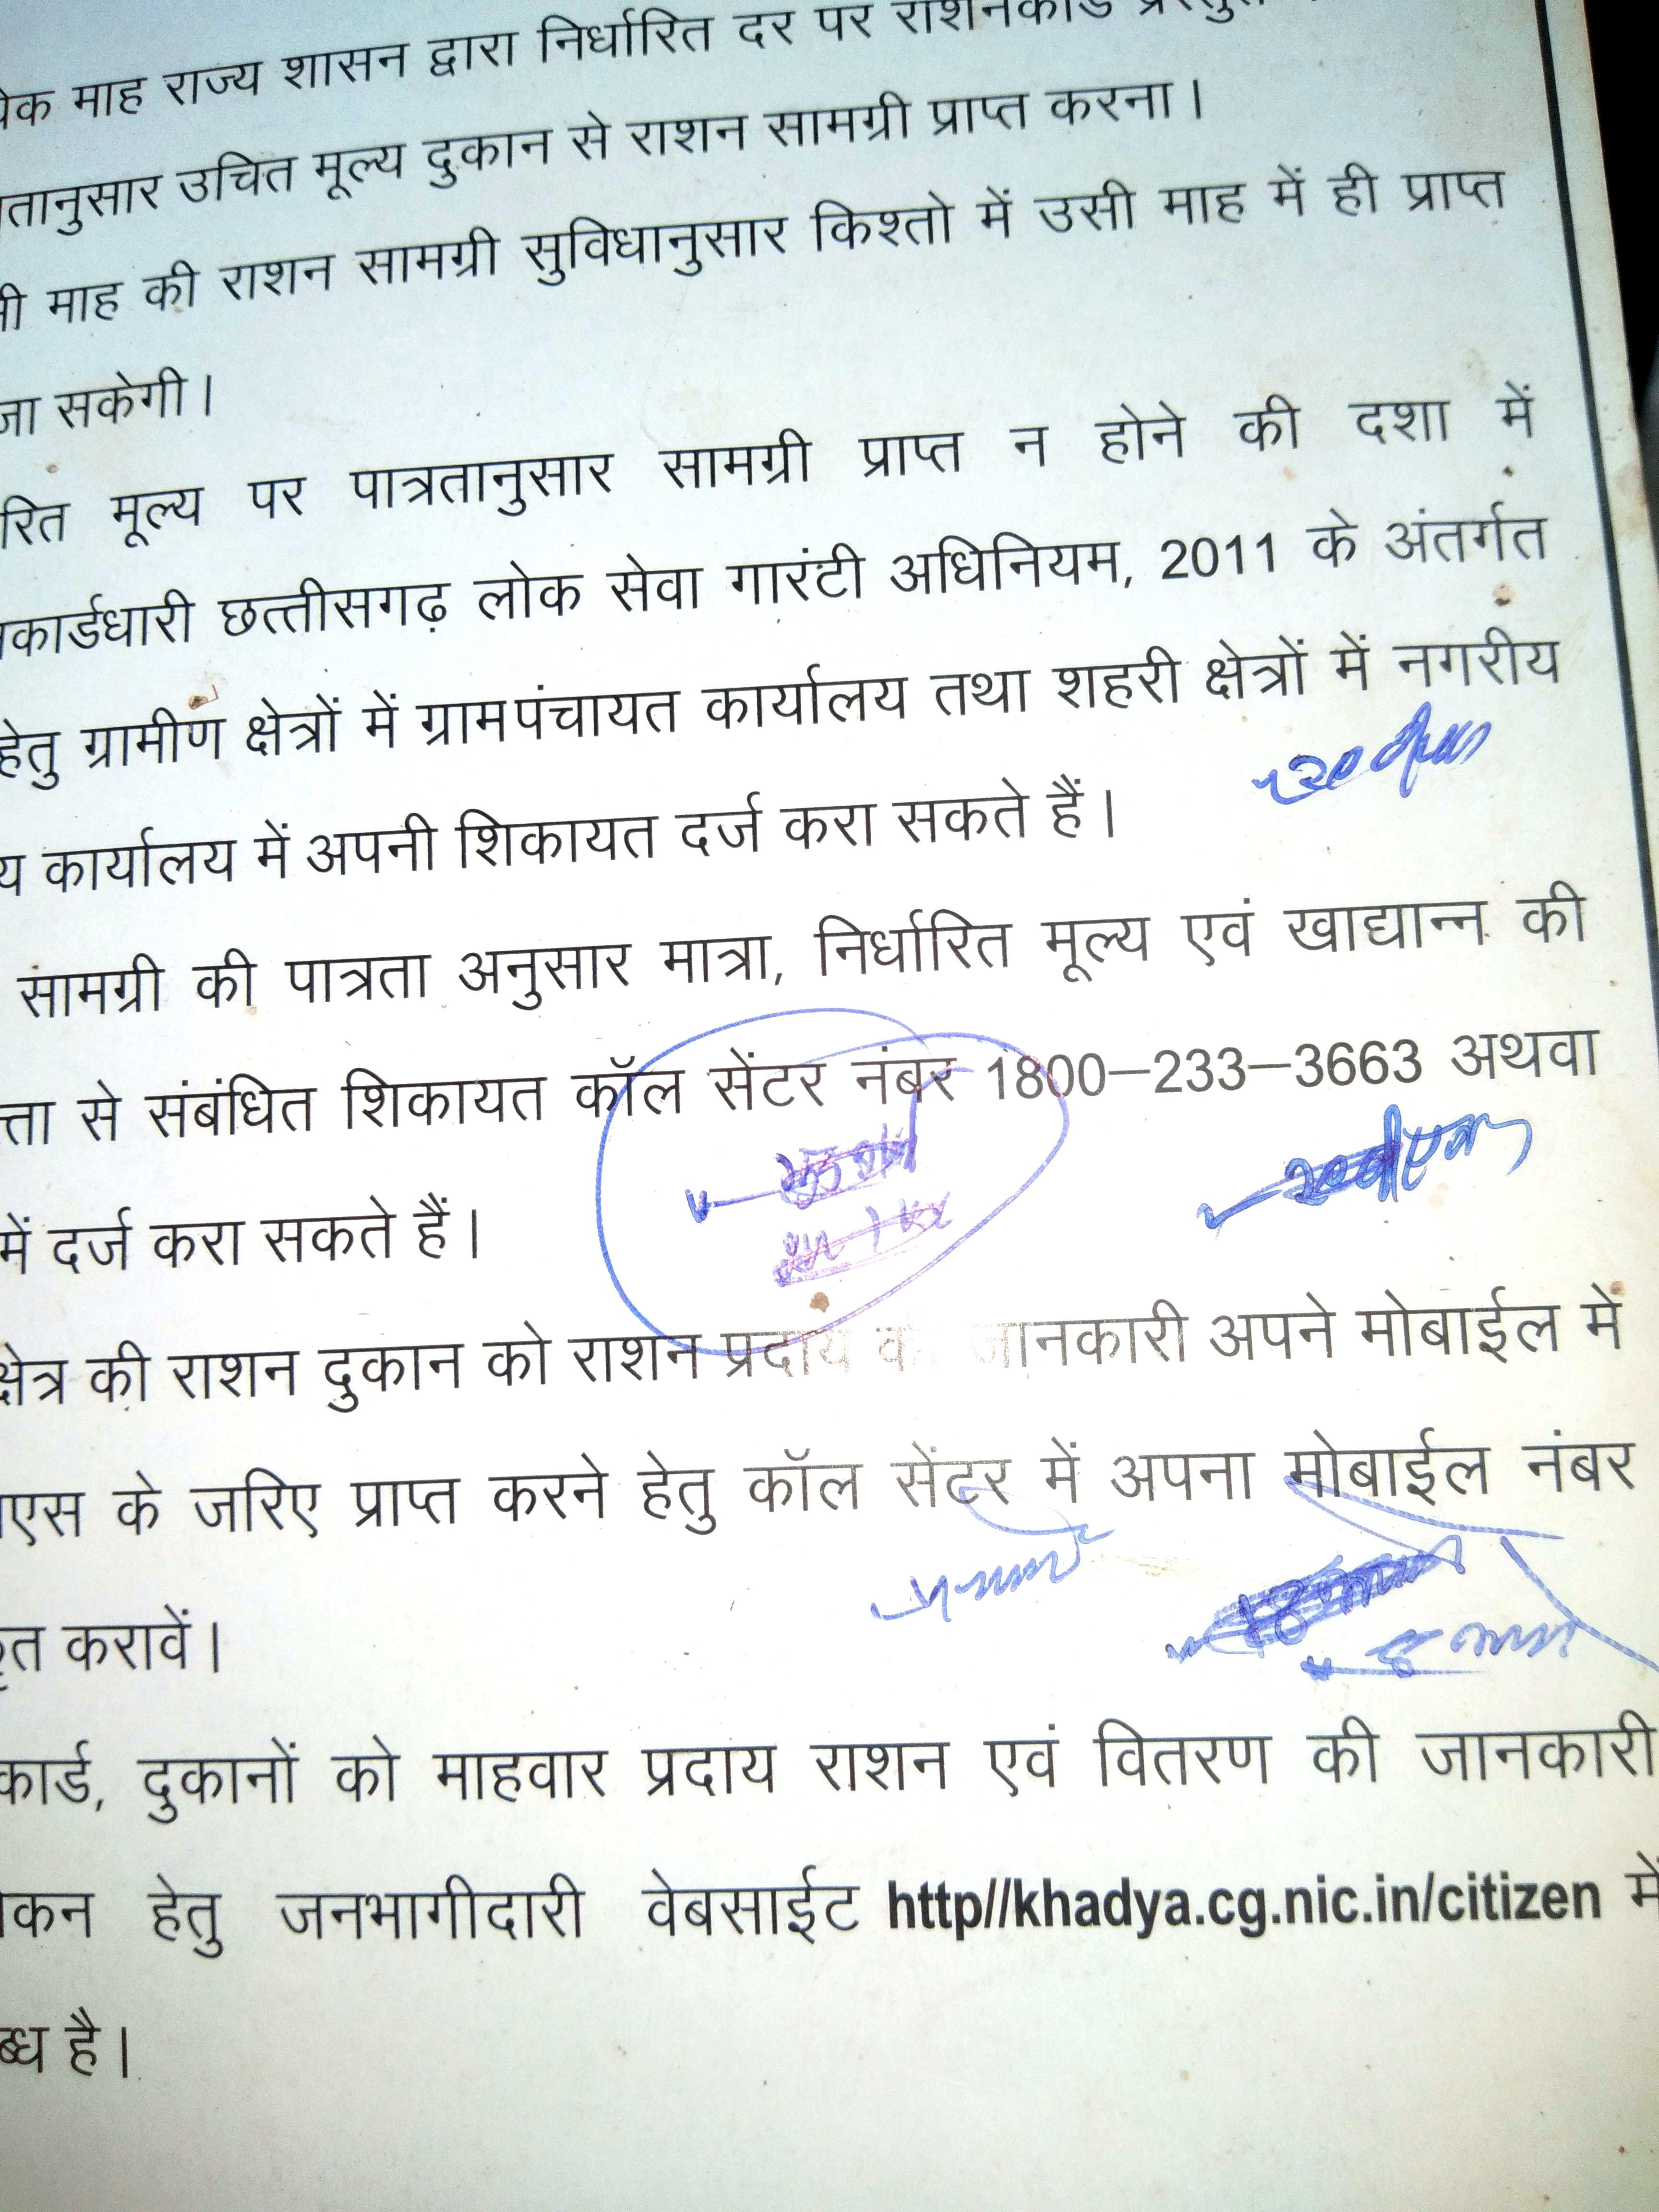 माह राज्य शासन द्वारा निर्धारित दर पर राशनकार्ड
उचित मूल्य दुकान से राशन सामग्री प्राप्त करना।
माह की राशन सामग्री सुविधानुसार किश्तो में उसी माह में ही प्राप्त
जा सकेगी।
रित मूल्य पर पात्रतानुसार सामग्री प्राप्त न होने की दशा में
कार्डधारी छत्तीसगढ़ लोक सेवा गारंटी अधिनियम, 2011 के अंतर्गत
हेतु ग्रामीण क्षेत्रों में ग्रामपंचायत कार्यालय तथा शहरी क्षेत्रों में नगरीय
य कार्यालय में अपनी शिकायत दर्ज करा सकते हैं।
सामग्री की पात्रता अनुसार मात्रा, निर्धारित मूल्य एवं खाद्यान्न की
त्ता से संबंधित शिकायत कॉल सेंटर नंबर 1800–233–3663 अथवा
में दर्ज करा सकते हैं।
क्षेत्र की राशन दुकान को राशन प्रदाय जानकारी अपने मोबाईल में
एस के जरिए प्राप्त करने हेतु कॉल सेंटर में अपना मोबाईल नंबर
त करावें।
कार्ड, दुकानों को माहवार प्रदाय राशन एवं वितरण की जानकारी
कन हेतु जनभागीदारी वेबसाईट http//khadya.cg.nic.in/citizen में
ब्ध है।